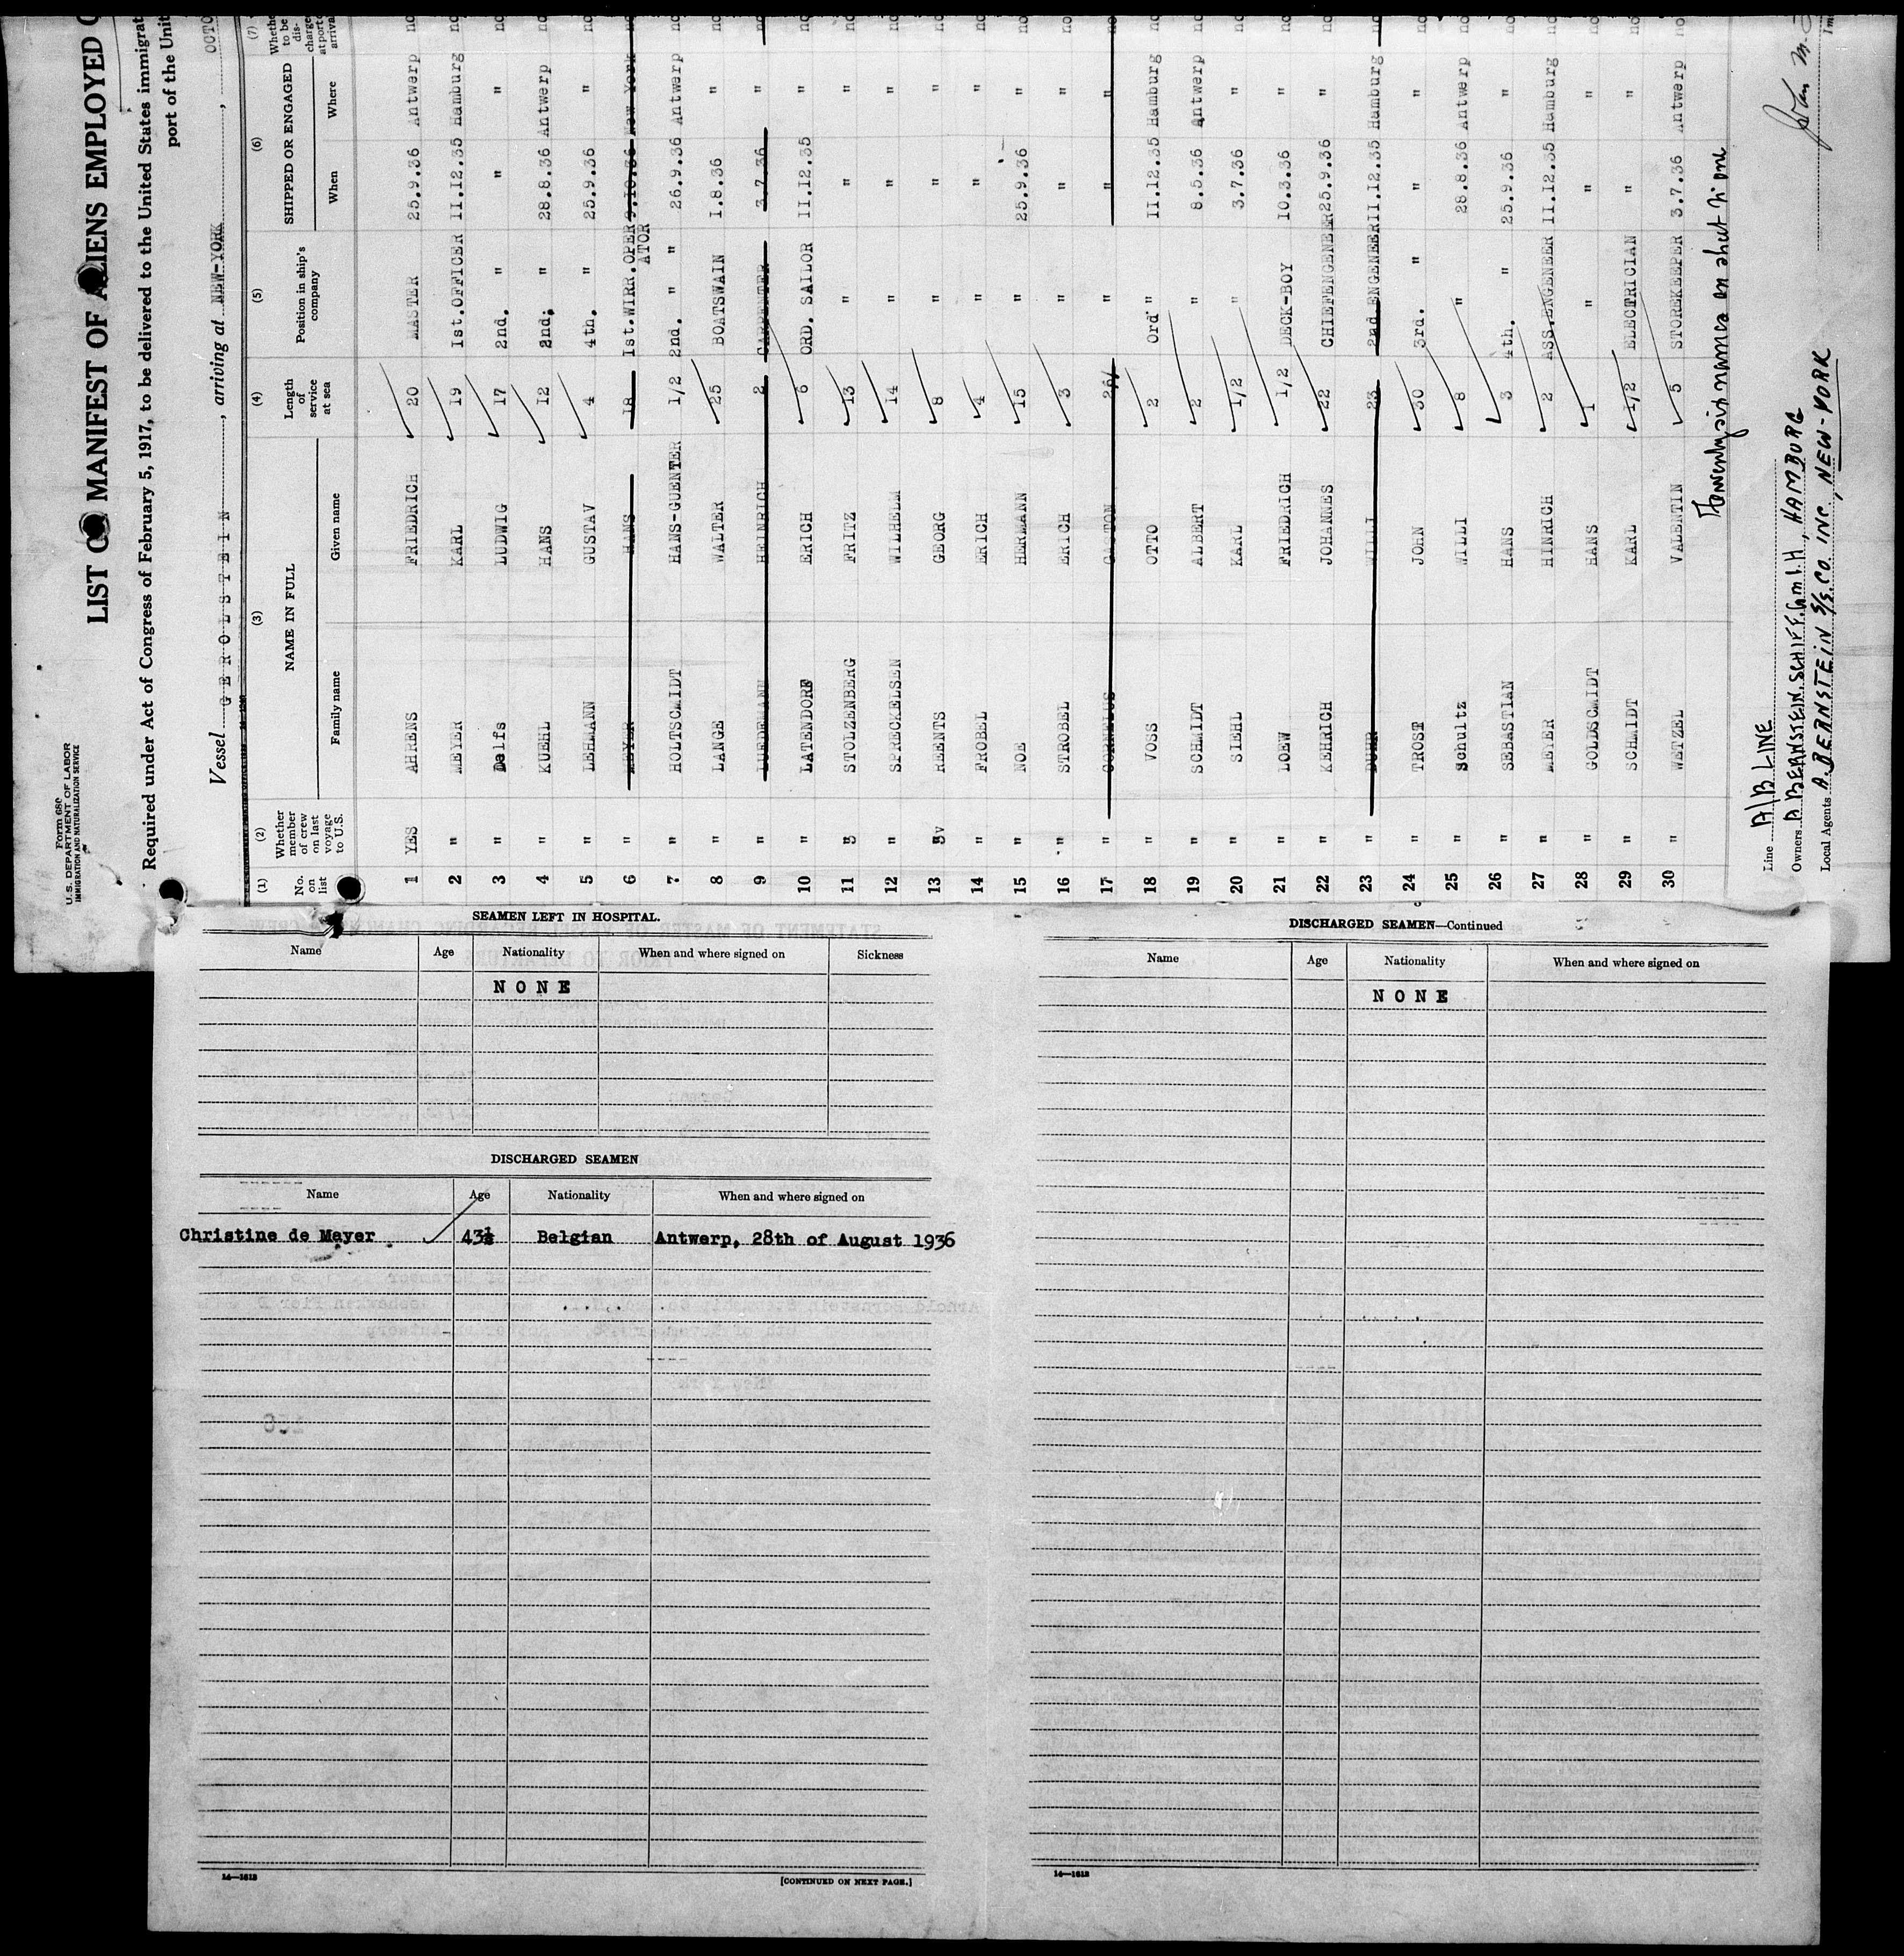 Form 680
U. S. DEPARTMENT OF LABOR
IMMIGRATION AND NATURALIZATION SERVICE
LIST MANIFEST OF ALIENS EMPLOYED
Required under Act of Congress of February 5, 1917, to be delivered to the United States immigrat
port of the Unit
Vessel GEROLSTEIN, arriving at NEW-YORK, OCTO
(1) (2) (3) (4) (5) (6) (7)
No. on list Whether member of crew on last voyage to U.S. NAME IN FULL Length of service at sea Position in ship's company SHIPPED OR ENGAGED Whether to be discharged at port of arrival
Family name Given name When Where
1 YES AHRENS FRIEDRICH 20 MASTER 25.9.36 Antwerp no
2 " MEYER KARL 19 1st.OFFICER 11.12.35 Hamburg no
3 " Delfs LUDWIG 17 2nd. " " " no
4 " KUEHL HANS 12 2nd. " 28.8.36 Antwerp no
5 " LEHMANN GUSTAV 4 4th. " 25.9.36 " no
6 " MEYER HANS 18 1st.WIRR.OPERATOR 9.10.36 New York no
7 " HOLTSCMIDT HANS-GUENTER 1/2 2nd. " " 26.9.36 Antwerp no
8 " LANGE WALTER 25 BOATSWAIN 1.8.36 " no
9 " LUEDEMANN HEINRICH 2 CARPENTER 3.7.36 " no
10 " LATENDORF ERICH 6 ORD. SAILOR 11.12.35 " no
11 " STOLZENBERG FRITZ 13 " " " no
12 " SPRECKELSEN WILHELM 14 " " " no
13 " REENTS GEORG 8 " " " no
14 " FROBEL ERICH 4 " " " no
15 " NOE HERMANN 15 " 25.9.36 " no
16 " STROBEL ERICH 3 " " " no
17 " CORNELIUS GASTON 26 " " " no
18 " VOSS OTTO 2 Ord " 11.12.35 Hamburg no
19 " SCHMIDT ALBERT 2 " 8.5.36 Antwerp no
20 " SIEHL KARL 1/2 " 3.7.36 " no
21 " LOEW FRIEDRICH 1/2 DECK-BOY 10.3.36 " no
22 " KEHRICH JOHANNES 22 CHIEFENGENEER 25.9.36 " no
23 " DUHR WILLI 23 2nd.ENGENEER 11.12.35 Hamburg no
24 " TROST JOHN 30 3rd. " " " no
25 " Schultz WILLI 8 " 28.8.36 Antwerp no
26 " SEBASTIAN HANS 3 4th. " 25.9.36 " no
27 " MEYER HINRICH 2 ASS.ENGENEER 11.12.35 Hamburg no
28 " GOLDSCMIDT HANS 1 " " " no
29 " SCHMIDT KARL 1/2 ELECTRICIAN " " no
30 " WETZEL VALENTIN 5 STOREKEEPER 3.7.36 Antwerp no
Twenty six names on sheet N° one
Line A/B LINE
Owners A BERNSTEIN. SCHIFF. G.m.b.H, HAMBURG
Local Agents A. BERNSTEIN S/S. CO. INC, NEW-YORK
John M.
SEAMEN LEFT IN HOSPITAL.
Name Age Nationality When and where signed on Sickness
NONE
DISCHARGED SEAMEN
Name Age Nationality When and where signed on
Christine de Meyer 43½ Belgian Antwerp, 28th of August 1936
14—1613
[CONTINUED ON NEXT PAGE.]
DISCHARGED SEAMEN—Continued
Name Age Nationality When and where signed on
NONE
14—1613